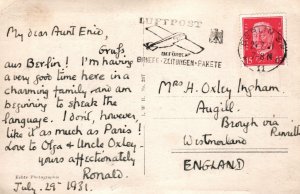 My dear Aunt Enid,
Gruß
aus Berlin! I'm having
a very good time here in a
charming family and am
beginning to speak the
language. I don't, however,
like it as much as Paris!
Love to Olga & Uncle Oxley.
yours affectionately
Ronald.
July. 29th 1931.
Echte Photographie
LUFTPOST
BRIEFE-ZEITUNGEN-PAKETE
15
15
Mrs H. Oxley Ingham
Augill
Brough
Westmorland
ENGLAND